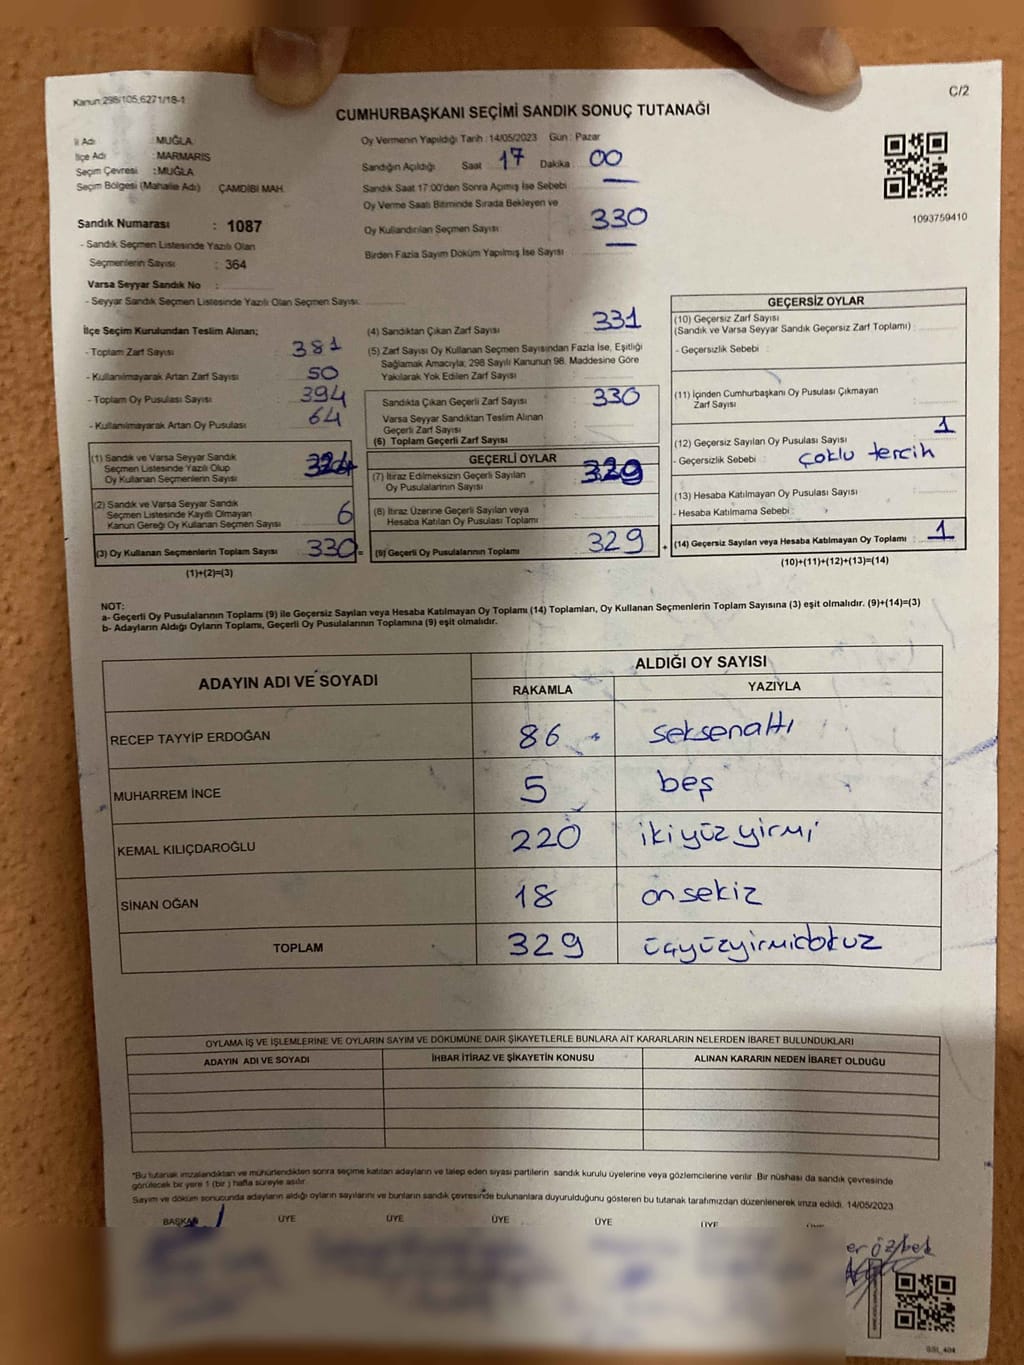 Kanun:298/105,6271/18-1
C/2
CUMHURBAŞKANI SEÇİMİ SANDIK SONUÇ TUTANAĞI
İl Adı : MUĞLA
İlçe Adı : MARMARİS
Seçim Çevresi : MUĞLA
Seçim Bölgesi (Mahalle Adı) ÇAMDİBİ MAH.
Sandık Numarası : 1087
- Sandık Seçmen Listesinde Yazılı Olan
Seçmenlerin Sayısı : 364
Varsa Seyyar Sandık No :
- Seyyar Sandık Seçmen Listesinde Yazılı Olan Seçmen Sayısı:
Oy Vermenin Yapıldığı Tarih :14/05/2023 Gün : Pazar
Sandığın Açıldığı Saat 17 Dakika 00
Sandık Saat 17:00'den Sonra Açımış İse Sebebi
Oy Verme Saati Bitiminde Sırada Bekleyen ve
Oy Kullandırılan Seçmen Sayısı 330
Birden Fazla Sayım Döküm Yapılmış İse Sayısı
1093759410
İlçe Seçim Kurulundan Teslim Alınan;
- Toplam Zarf Sayısı 381
- Kullanılmayarak Artan Zarf Sayısı 50
- Toplam Oy Pusulası Sayısı 394
- Kullanılmayarak Artan Oy Pusulası 64
(1) Sandık ve Varsa Seyyar Sandık
Seçmen Listesinde Yazılı Olup
Oy Kullanan Seçmenlerin Sayısı 324
(2) Sandık ve Varsa Seyyar Sandık
Seçmen Listesinde Kayıtlı Olmayan
Kanun Gereği Oy Kullanan Seçmen Sayısı 6
(3) Oy Kullanan Seçmenlerin Toplam Sayısı 330 =
(1)+(2)=(3)
(4) Sandıktan Çıkan Zarf Sayısı 331
(5) Zarf Sayısı Oy Kullanan Seçmen Sayısından Fazla İse, Eşitliği
Sağlamak Amacıyla; 298 Sayılı Kanunun 98. Maddesine Göre
Yakılarak Yok Edilen Zarf Sayısı
Sandıkta Çıkan Geçerli Zarf Sayısı 330
Varsa Seyyar Sandıktan Teslim Alınan
Geçerli Zarf Sayısı
(6) Toplam Geçerli Zarf Sayısı
GEÇERLİ OYLAR
(7) İtiraz Edilmeksizin Geçerli Sayılan
Oy Pusulalarının Sayısı 329
(8) İtiraz Üzerine Geçerli Sayılan veya
Hesaba Katılan Oy Pusulası Toplamı
(9) Geçerli Oy Pusulalarının Toplamı 329 +
GEÇERSİZ OYLAR
(10) Geçersiz Zarf Sayısı
(Sandık ve Varsa Seyyar Sandık Geçersiz Zarf Toplamı) :
- Geçersizlik Sebebi :
(11) İçinden Cumhurbaşkanı Oy Pusulası Çıkmayan
Zarf Sayısı :
(12) Geçersiz Sayılan Oy Pusulası Sayısı : 1
- Geçersizlik Sebebi : çoklu tercih
(13) Hesaba Katılmayan Oy Pusulası Sayısı :
- Hesaba Katılmama Sebebi :
(14) Geçersiz Sayılan veya Hesaba Katılmayan Oy Toplamı : 1
(10)+(11)+(12)+(13)=(14)
NOT:
a- Geçerli Oy Pusulalarının Toplamı (9) ile Geçersiz Sayılan veya Hesaba Katılmayan Oy Toplamı (14) Toplamları, Oy Kullanan Seçmenlerin Toplam Sayısına (3) eşit olmalıdır. (9)+(14)=(3)
b- Adayların Aldığı Oyların Toplamı, Geçerli Oy Pusulalarının Toplamına (9) eşit olmalıdır.
ADAYIN ADI VE SOYADI
ALDIĞI OY SAYISI
RAKAMLA YAZIYLA
RECEP TAYYİP ERDOĞAN 86 seksenaltı
MUHARREM İNCE 5 beş
KEMAL KILIÇDAROĞLU 220 ikiyüzyirmi
SİNAN OĞAN 18 onsekiz
TOPLAM 329 üçyüzyirmidokuz
OYLAMA İŞ VE İŞLEMLERİNE VE OYLARIN SAYIM VE DÖKÜMÜNE DAİR ŞİKAYETLERLE BUNLARA AİT KARARLARIN NELERDEN İBARET BULUNDUKLARI
ADAYIN ADI VE SOYADI İHBAR İTİRAZ VE ŞİKAYETİN KONUSU ALINAN KARARIN NEDEN İBARET OLDUĞU
*Bu tutanak imzalandıktan ve mühürlendikten sonra seçime katılan adayların ve talep eden siyasi partilerin sandık kurulu üyelerine veya gözlemcilerine verilir. Bir nüshası da sandık çevresinde
görülecek bir yere 1 (bir ) hafta süreyle asılır.
Sayım ve döküm sonucunda adayların aldığı oyların sayılarını ve bunların sandık çevresinde bulunanlara duyurulduğunu gösteren bu tutanak tarafımızdan düzenlenerek imza edildi. 14/05/2023
BAŞKAN ÜYE ÜYE ÜYE ÜYE ÜYE
er özbek